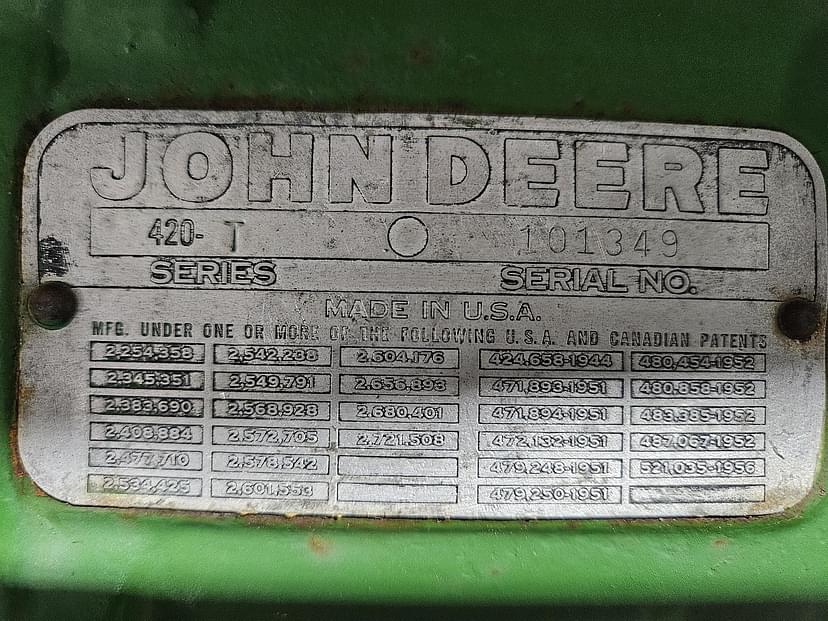 JOHN DEERE
420- T 101349
SERIES SERIAL NO.
MADE IN U.S.A.
MFG. UNDER ONE OR MORE OF THE FOLLOWING U.S.A. AND CANADIAN PATENTS
2,254,358 2,542,238 2,604,176 424,658-1944 480,454-1952
2,345,351 2,549,791 2,656,893 471,893-1951 480,858-1952
2,383,690 2,568,928 2,680,401 471,894-1951 483,385-1952
2,408,884 2,572,705 2,721,508 472,132-1951 487,067-1952
2,477,710 2,578,542 479,248-1951 521,035-1956
2,534,425 2,601,553 479,250-1951